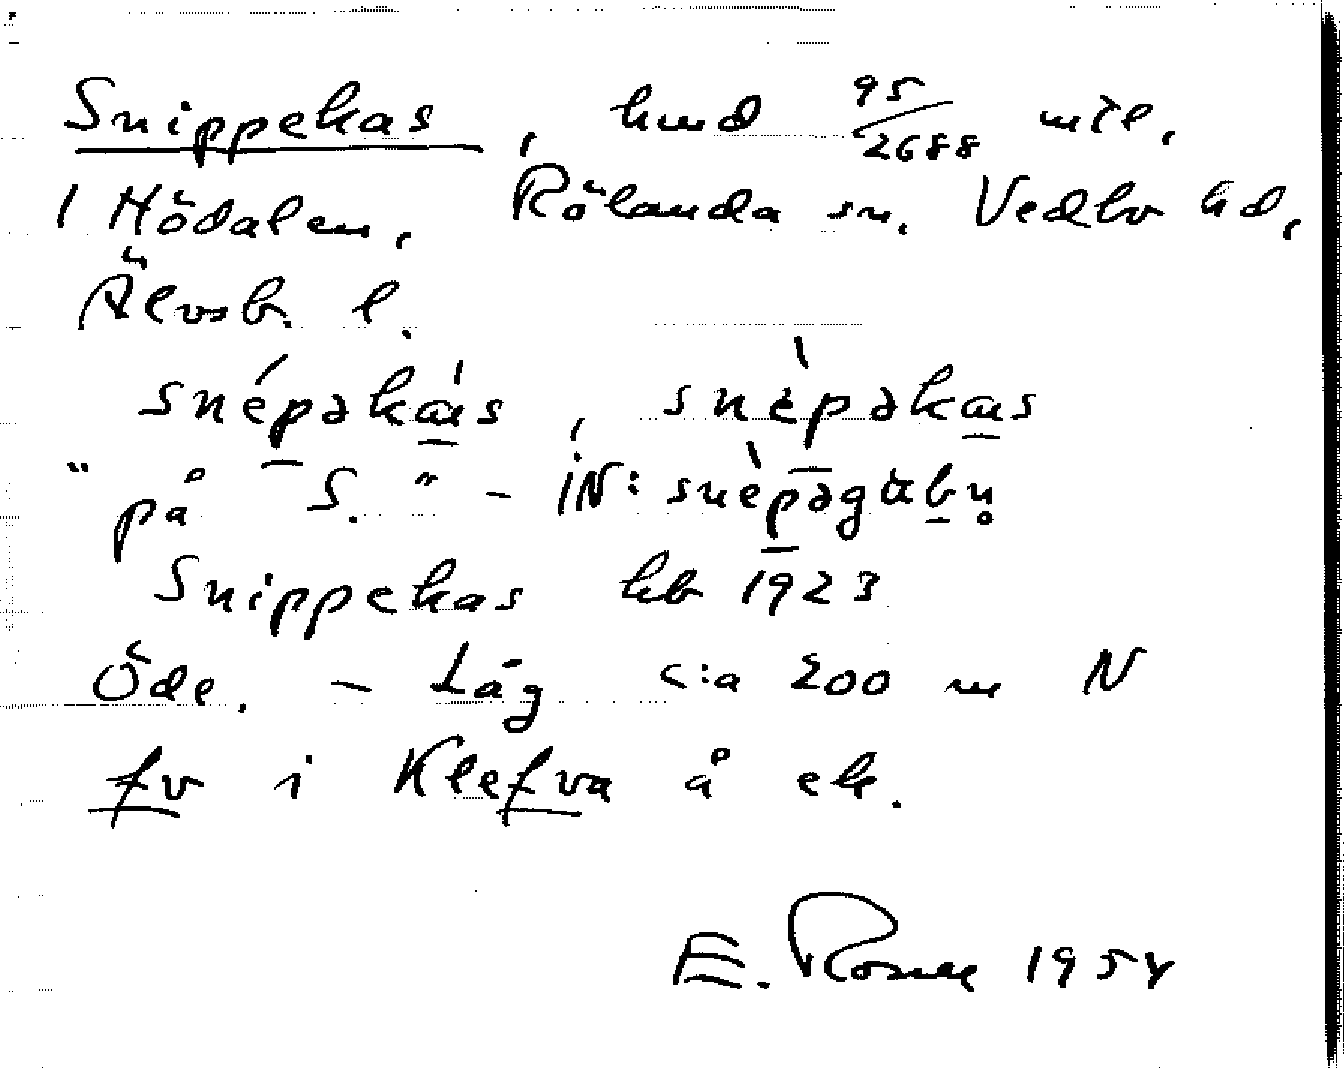 Snippekas, hmd 95/2688 mtl.
1 Hödalen, Rölanda sn. Vedbo hd,
Älvsb. l.
snépəkás, snèpəkas
"på S." - IN:
Snippekas kb 1923
Öde. - Låg c:a 200 m N
fv i Klefva å ek.
E. Rosell 1954